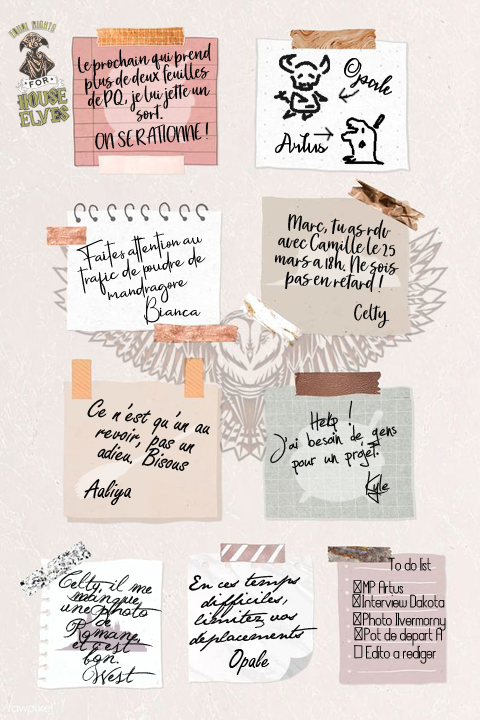 EQUAL RIGHTS
FOR
HOUSE
ELVES
Le prochain qui prend
plus de deux feuilles
de PQ, je lui jette un
sort.
ON SE RATIONNE !
Opale
Artus
Faites attention au
trafic de poudre de
mandragore
Bianca
Marc, tu as rdv
avec Camille le 25
mars a 18h. Ne sois
pas en retard !
Celty
Ce n'est qu'un au
revoir, pas un
adieu. Bisous
Aaliya
Help !
J'ai besoin de gens
pour un projet.
Kyle
Celty, il me
manque
une photo
de
Romane,
et c'est
bon.
West
En ces temps
difficiles,
limitez vos
deplacements
Opale
To do list
☒MP Artus
☒Interview Dakota
☒Photo Ilvermorny
☒Pot de depart A
☐ Edito a rediger
rawpixel